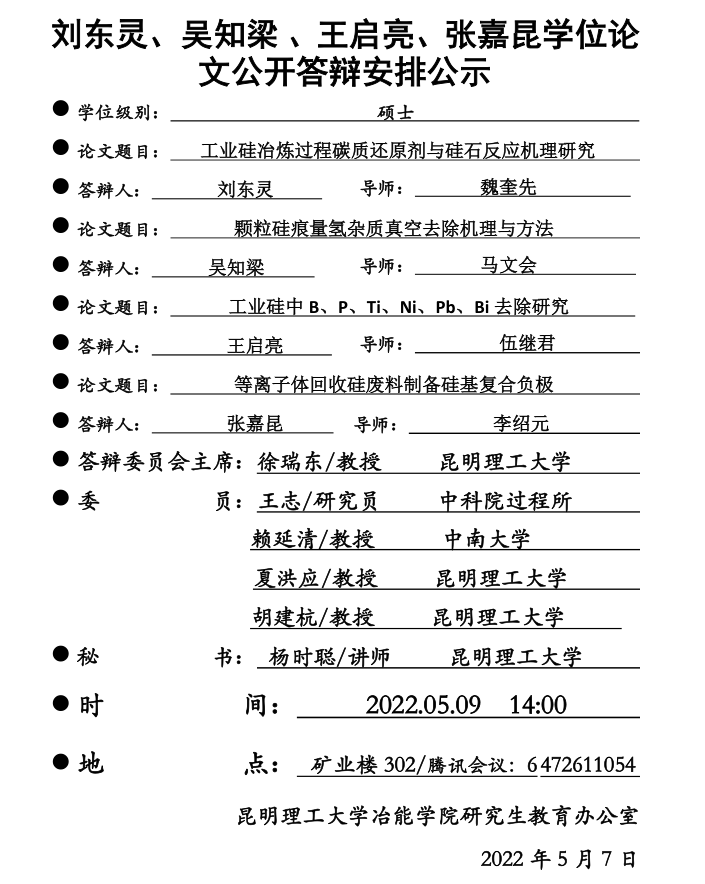 刘东灵、吴知梁 、王启亮、张嘉昆学位论
文公开答辩安排公示
● 学位级别： 硕士
● 论文题目： 工业硅冶炼过程碳质还原剂与硅石反应机理研究
● 答辩人： 刘东灵 导师： 魏奎先
● 论文题目： 颗粒硅痕量氢杂质真空去除机理与方法
● 答辩人： 吴知梁 导师： 马文会
● 论文题目： 工业硅中 B、P、Ti、Ni、Pb、Bi 去除研究
● 答辩人： 王启亮 导师： 伍继君
● 论文题目： 等离子体回收硅废料制备硅基复合负极
● 答辩人： 张嘉昆 导师： 李绍元
● 答辩委员会主席：徐瑞东/教授 昆明理工大学
● 委 员：王志/研究员 中科院过程所
赖延清/教授 中南大学
夏洪应/教授 昆明理工大学
胡建杭/教授 昆明理工大学
● 秘 书： 杨时聪/讲师 昆明理工大学
● 时 间： 2022.05.09 14:00
● 地 点： 矿业楼 302/腾讯会议：6472611054
昆明理工大学冶能学院研究生教育办公室
2022 年 5 月 7 日